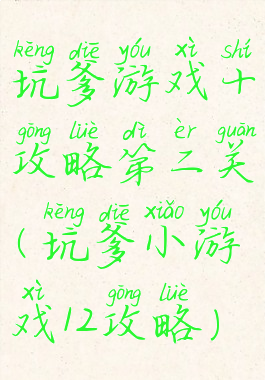 kēng diē yóu xì shí
坑爹游戏十
gōng lüè dì èr guān
攻略第二关
kēng diē xiǎo yóu
(坑爹小游
xì gōng lüè
戏12攻略)